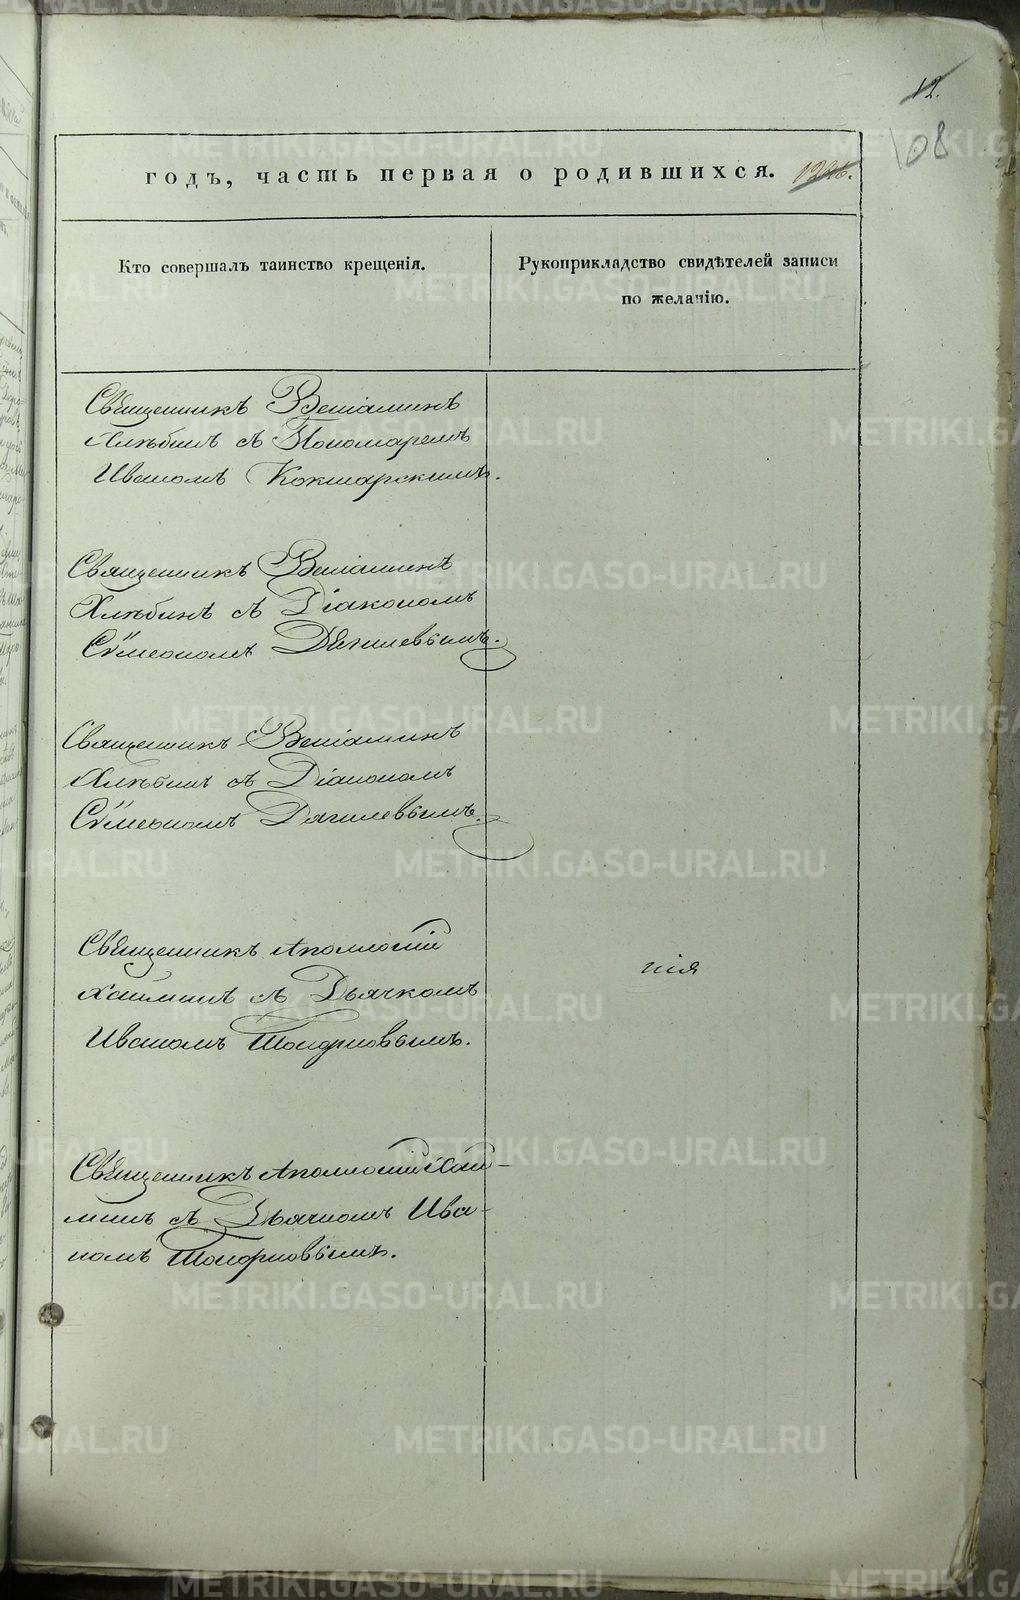 12.
108
годъ, часть первая о родившихся.
Кто совершалъ таинство крещенія.
Рукоприкладство свидѣтелей записи
по желанію.
Священникъ Веніаминъ
Хлѣбинъ съ Пономаремъ
Иваномъ Кокшарскимъ.
Священникъ Веніаминъ
Хлѣбинъ съ Діакономъ
Сѵмеономъ Дягилевымъ.
Священникъ Веніаминъ
Хлѣбинъ съ Діакономъ
Сѵмеономъ Дягилевымъ.
Священникъ Аполлосій
съ Дьячкомъ
Иваномъ
нія
Священникъ Аполлосій
съ Дьячкомъ Ива-
номъ
METRIKI.GASO-URAL.RU